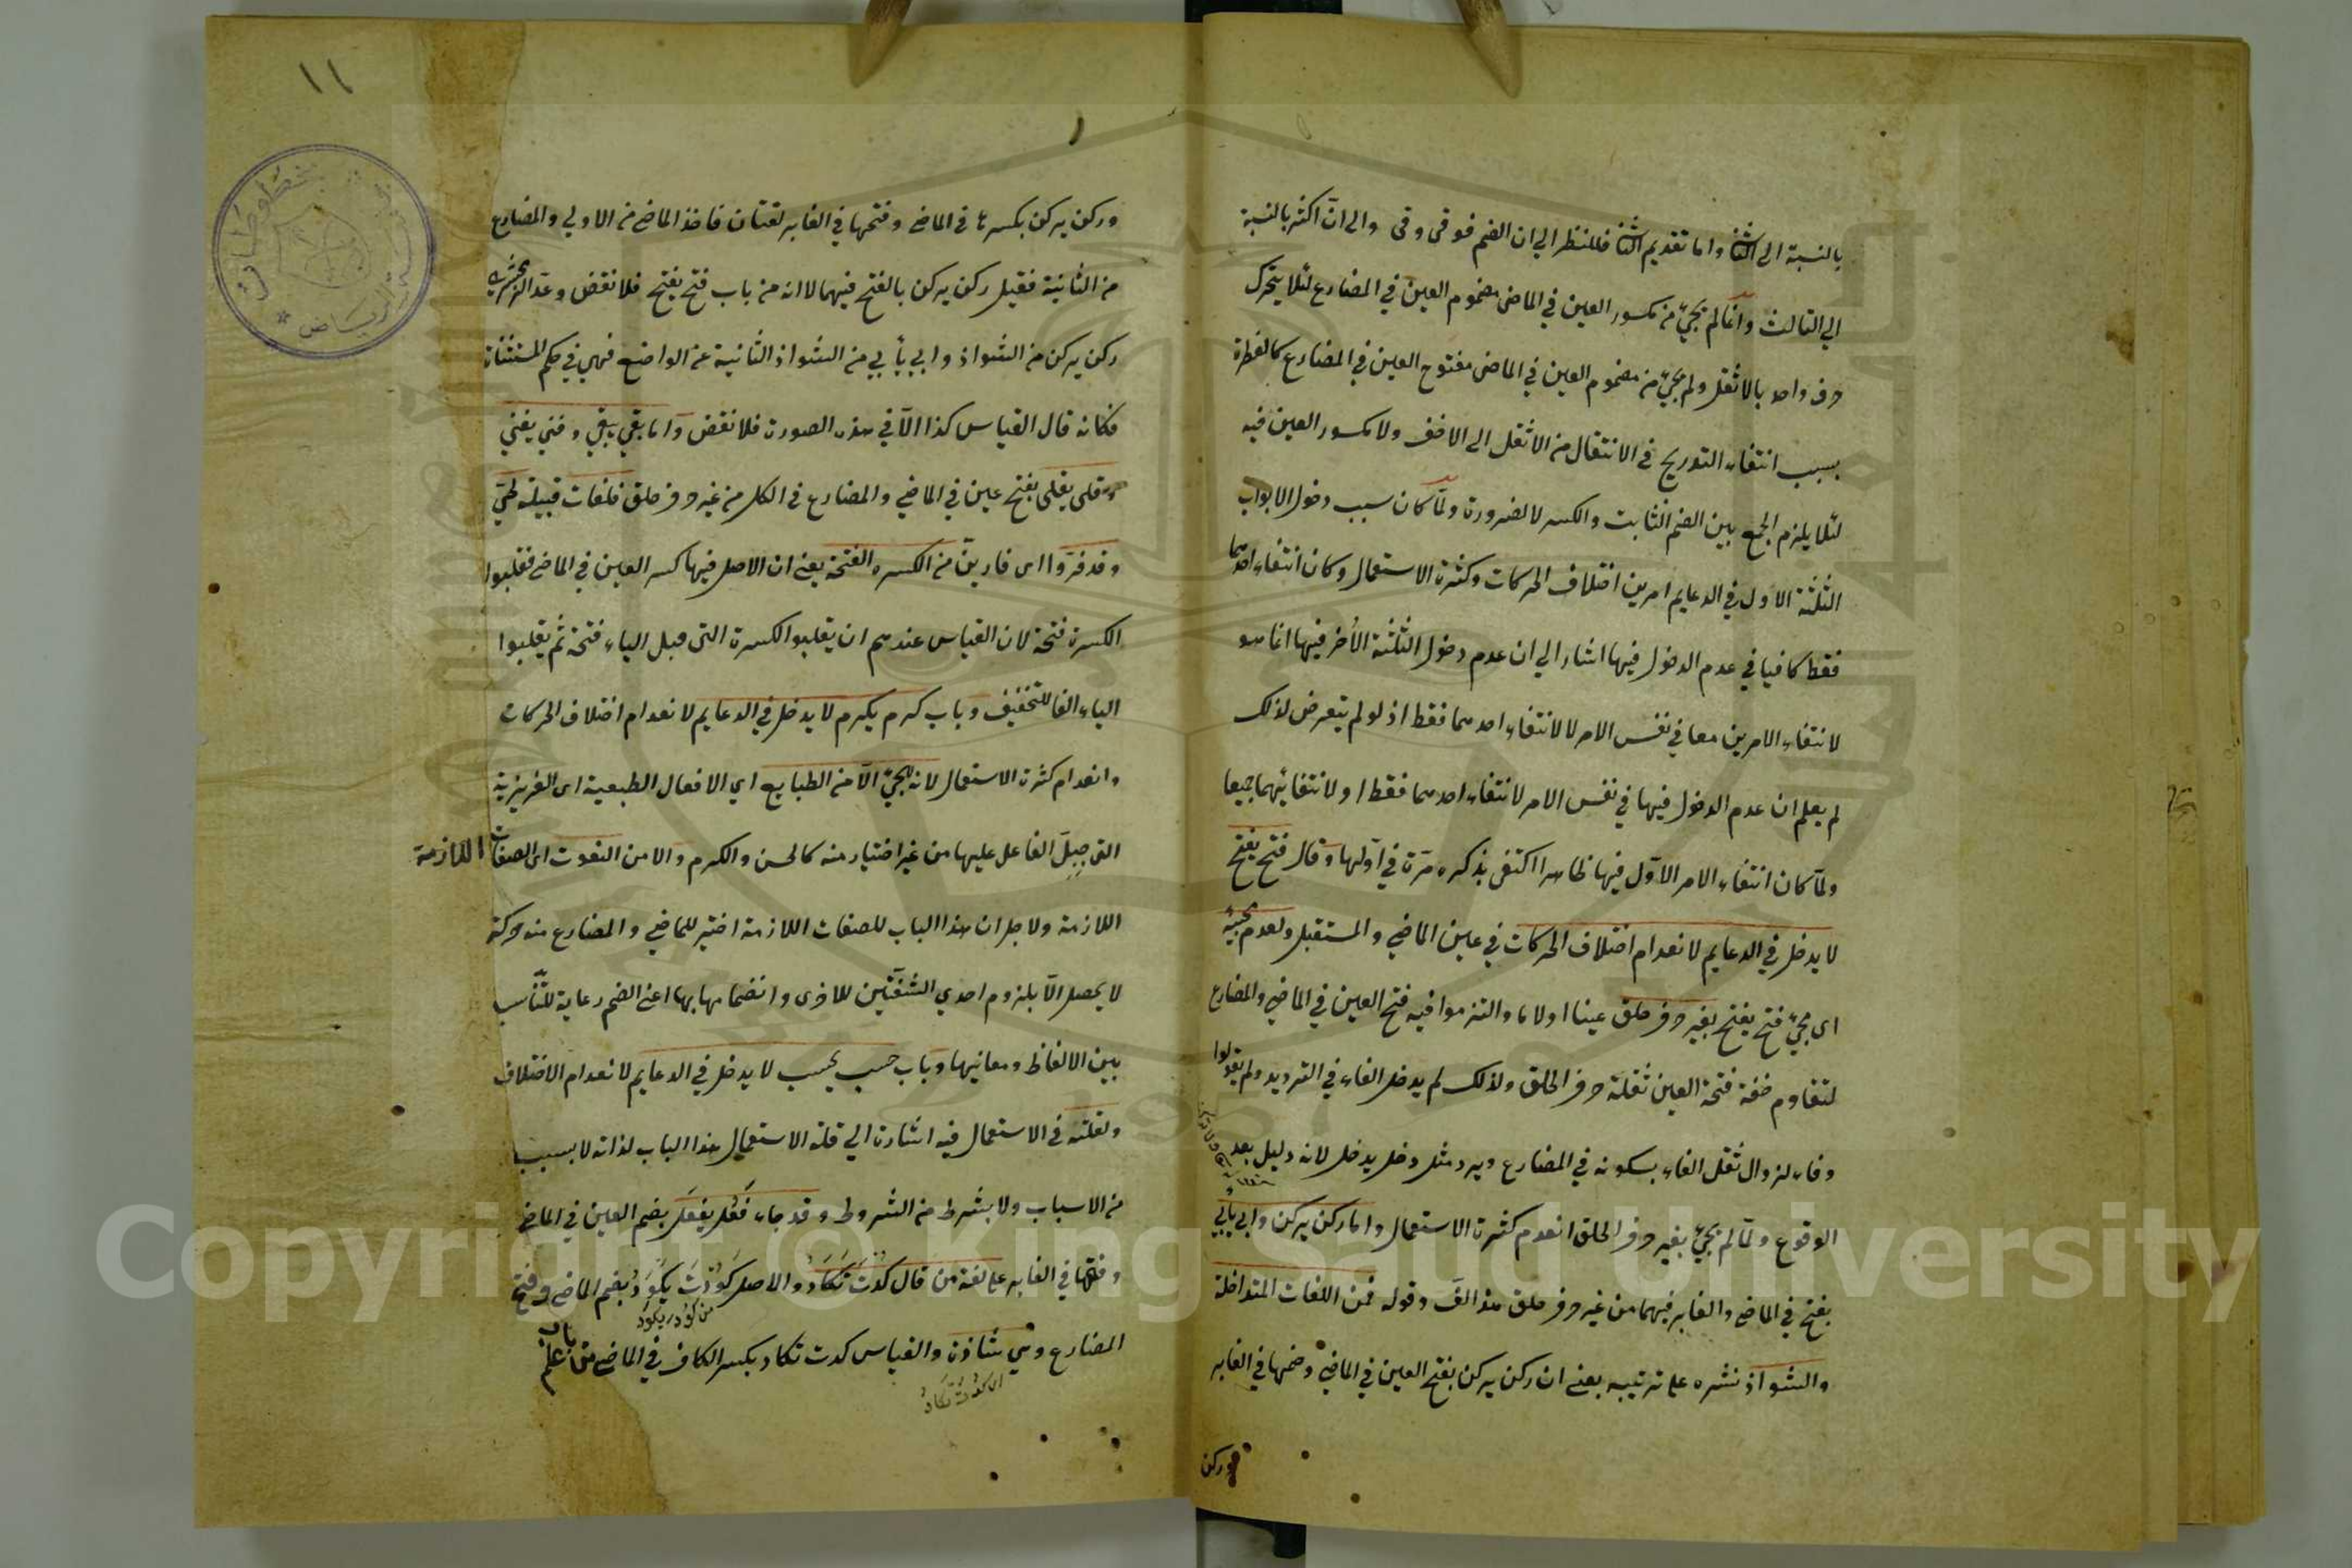 بالنسبة الى الثالث واما تقديم الثانى فللنظر الي ان الضم فوقى وقى والى انّ اكثر بالنسبة
الي الثالث وانما لم يجئ من مكسور العين في الماضى مضموم العين في المضارع لئلا يتحرك
حرف واحد بالاثقل ولم يجئ من مضموم العين في الماضى مفتوح العين في المضارع كالفطرة
بسبب انتفاء التوريج في الانتقال من الاثقل الى الاخف ولا مكسور العين فيه
لئلا يلزم الجمع بين الضم الثابت والكسر لا لضرورة ولمّا كان سبب دخول الابواب
الثلثة الاول في الدعايم امرين اختلاف الحركات وكثرة الاستعمال وكان انتفاء احدهما
فقط كافيا في عدم الدخول فيها اشار الي ان عدم دخول الثلثة الأخر فيها انما هو
لانتفاء الامرين معا في نفس الامر لا لانتفاء احدهما فقط اذ لو لم يتعرض لذلك
لم يعلم ان عدم الدخول فيها في نفس الامر لانتفاء احدهما فقط او لانتفائهما جميعا
ولمّا كان انتفاء الامر الاوّل فيها ظاهرا اكتفى بذكره مرّة في اوّلها وقال فتح يفتح
لا يدخل في الدعايم لانعدام اختلاف الحركات في عين الماضي والمستقبل ولعدم مجيئه
اى مجئ فتح يفتح بغير حرف حلق عينا او لاما والتزموا فيه فتح العين في الماضي والمضارع
لتقاوم خفة فتحة العين ثقلة حرف الحلق ولذلك لم يدخل الفاء في الترديد ولم يقولوا
وفاء لزوال ثقل الفاء بسكونه في المضارع ويرد مثل دخل يدخل لانه دليل بعد
الوقوع ولمّا لم يجئ بغير حرف الحلق انعدم كثرة الاستعمال واما ركن يركن وابي يأبي
بفتح في الماضي والغابر فيهما من غير حرف حلق وقوله فمن اللغات المتداخلة
والشواذ نشره على ترتيبه يعنى ان ركن يركن بفتح العين في الماضي وضمها في الغابر
وركن
١١
وركن يركن بكسرها في الماضي وفتحها في الغابر لغتان فاخذ الماضي من الاولي والمضارع
من الثانية فقيل ركن يركن بالفتح فيهما لا انه من باب فتح يفتح فلا نقض وعدّ الزمخشري
ركن يركن من الشواذ وابي يأبي من الشواذ الثانية عن الواضع فهي في حكم المستثناة
فكانه قال القياس كذا الاّ في هذه الصورة فلا نقض وامّا بقي يبقي وفني يفني
وقلى يقلى بفتح عين في الماضي والمضارع في الكل من غير حرف حلق فلغات قبيلة طيّ
وقد فرّوا اى فارين من الكسرة الفتحة يعنى ان الاصل فيها كسر العين في الماضي فقلبوا
الكسرة فتحة لان القياس عندهم ان يقلبوا الكسرة التى قبل الياء فتحة ثم يقلبوا
الياء الفا للتخفيف وباب كرم يكرم لا يدخل في الدعايم لانعدام اختلاف الحركات
وانعدام كثرة الاستعمال لانه لا يجئ الاّ من الطبايع اي الافعال الطبيعية اى الغريزية
التى جبل الفاعل عليها من غير اختيار منه كالحسن والكرم والا من النعوت اى الصفات اللازمة
اللازمة ولاجل ان هذا الباب للصفات اللازمة اختير للماضي والمضارع منه حركة
لا يحصل الاّ بلزوم احدي الشفتين للاخرى وانضمامها بها اعنى الضم رعاية للتناسب
بين الالفاظ ومعانيها وباب حسب يحسب لا يدخل في الدعايم لانعدام الاختلاف
ولقلته في الاستعمال فيه اشارة الي قلة الاستعمال هذا الباب لذاته لا بسبب
من الاسباب ولا بشرط من الشروط وقد جاء فَعُل يفعَل بضم العين في الماضي
وفتحها في الغابر على لغة من قال كُدتَ تَكَادُ والاصل كَوُدْتَ يكوَدُ بضم الماضي وفتح
من كَوُدَ يكوَد
المضارع وهي شاذة والقياس كدت تكاد بكسر الكاف في الماضي من باب علم
اى كَوُدْتَ تكَادُ